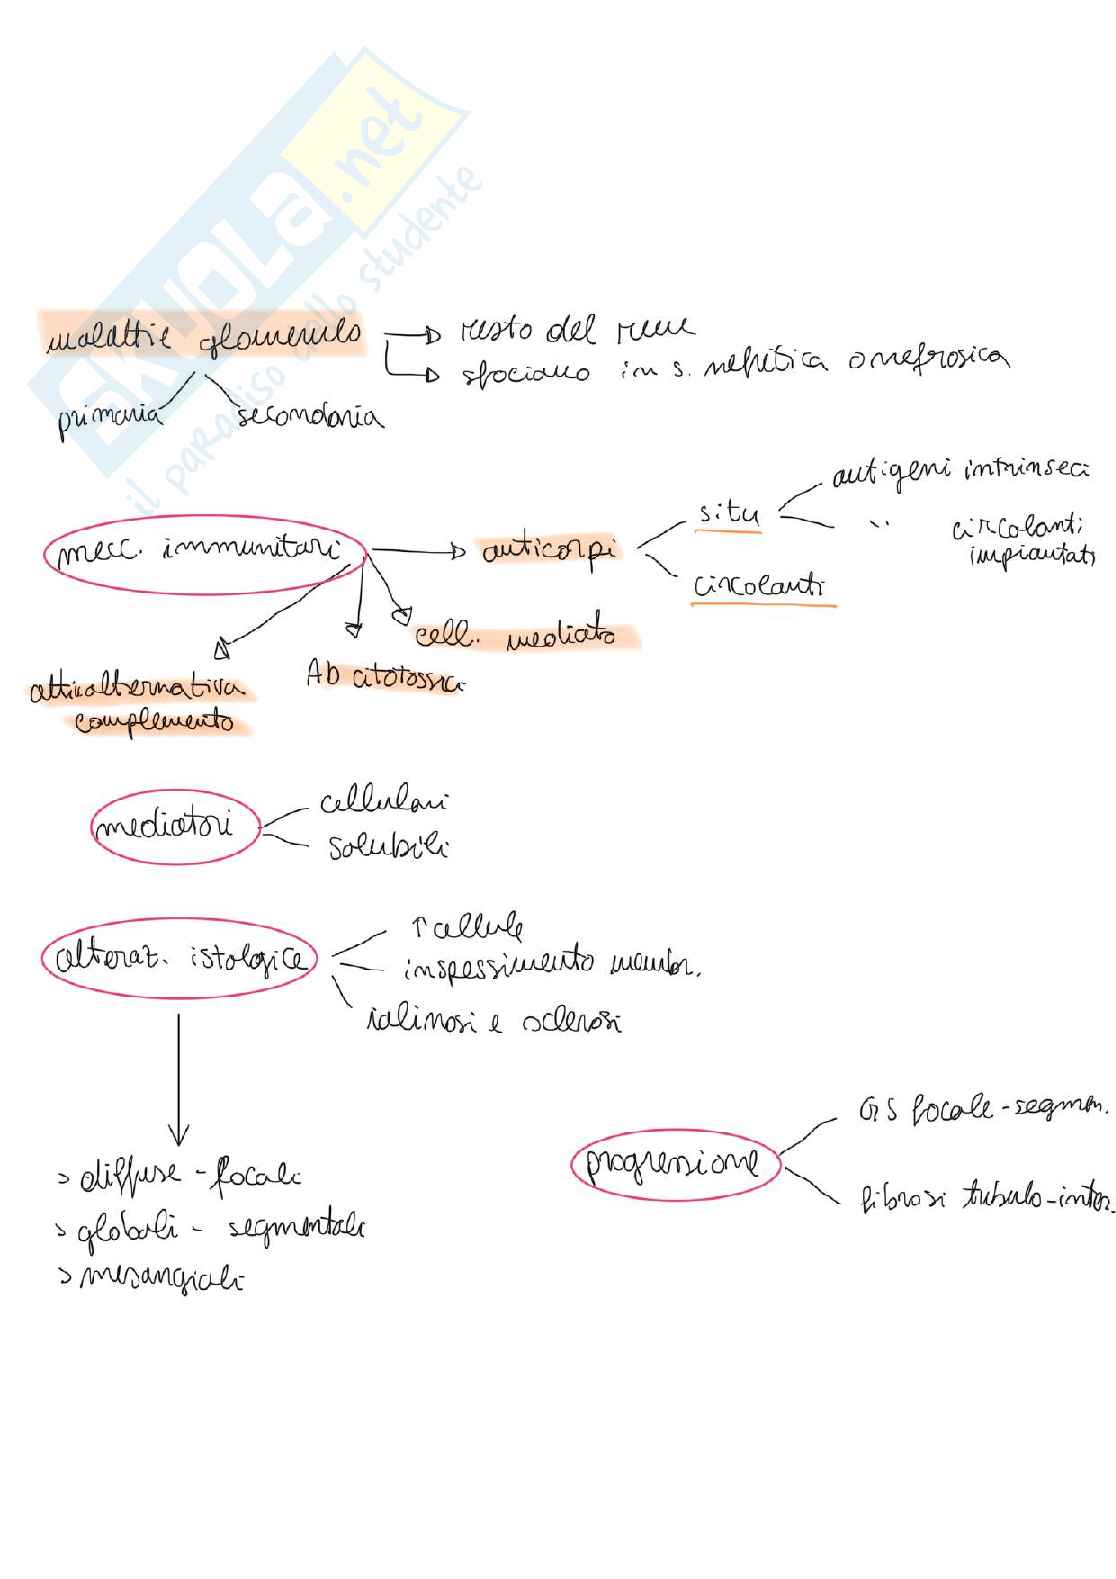 SKUOLA.net
il paradiso dello studente
malattie glomerulo
resto del rene
sfociano in s. nefritica o nefrosica
primaria
secondaria
antigeni intrinseci
situ
" circolanti
impiantati
mecc. immunitari
anticorpi
circolanti
cell. mediata
Ab citotossici
alternativa
complemento
mediatori
cellulari
solubili
alteraz. istologice
↑ cellule
inspessimento membr.
ialinosi e sclerosi
> diffuse - focali
> globali - segmentali
> mesangiali
progressione
GS focale-segmen.
fibrosi tubulo-inter.